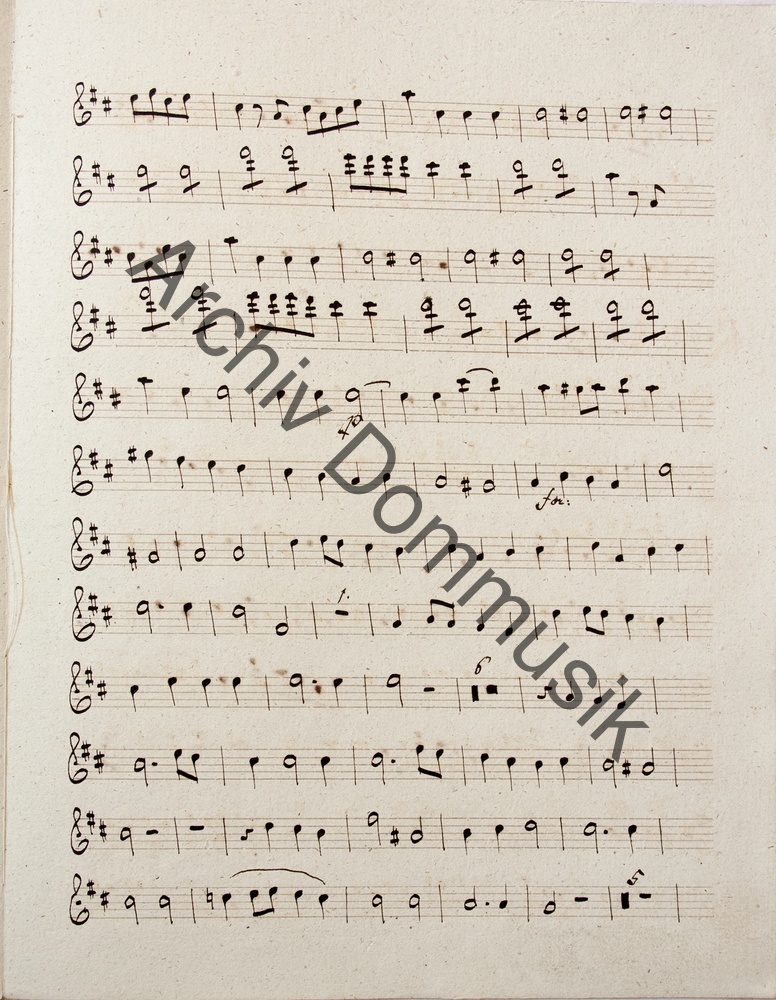 fp
for:
1.
6
5
Archiv Dommusik